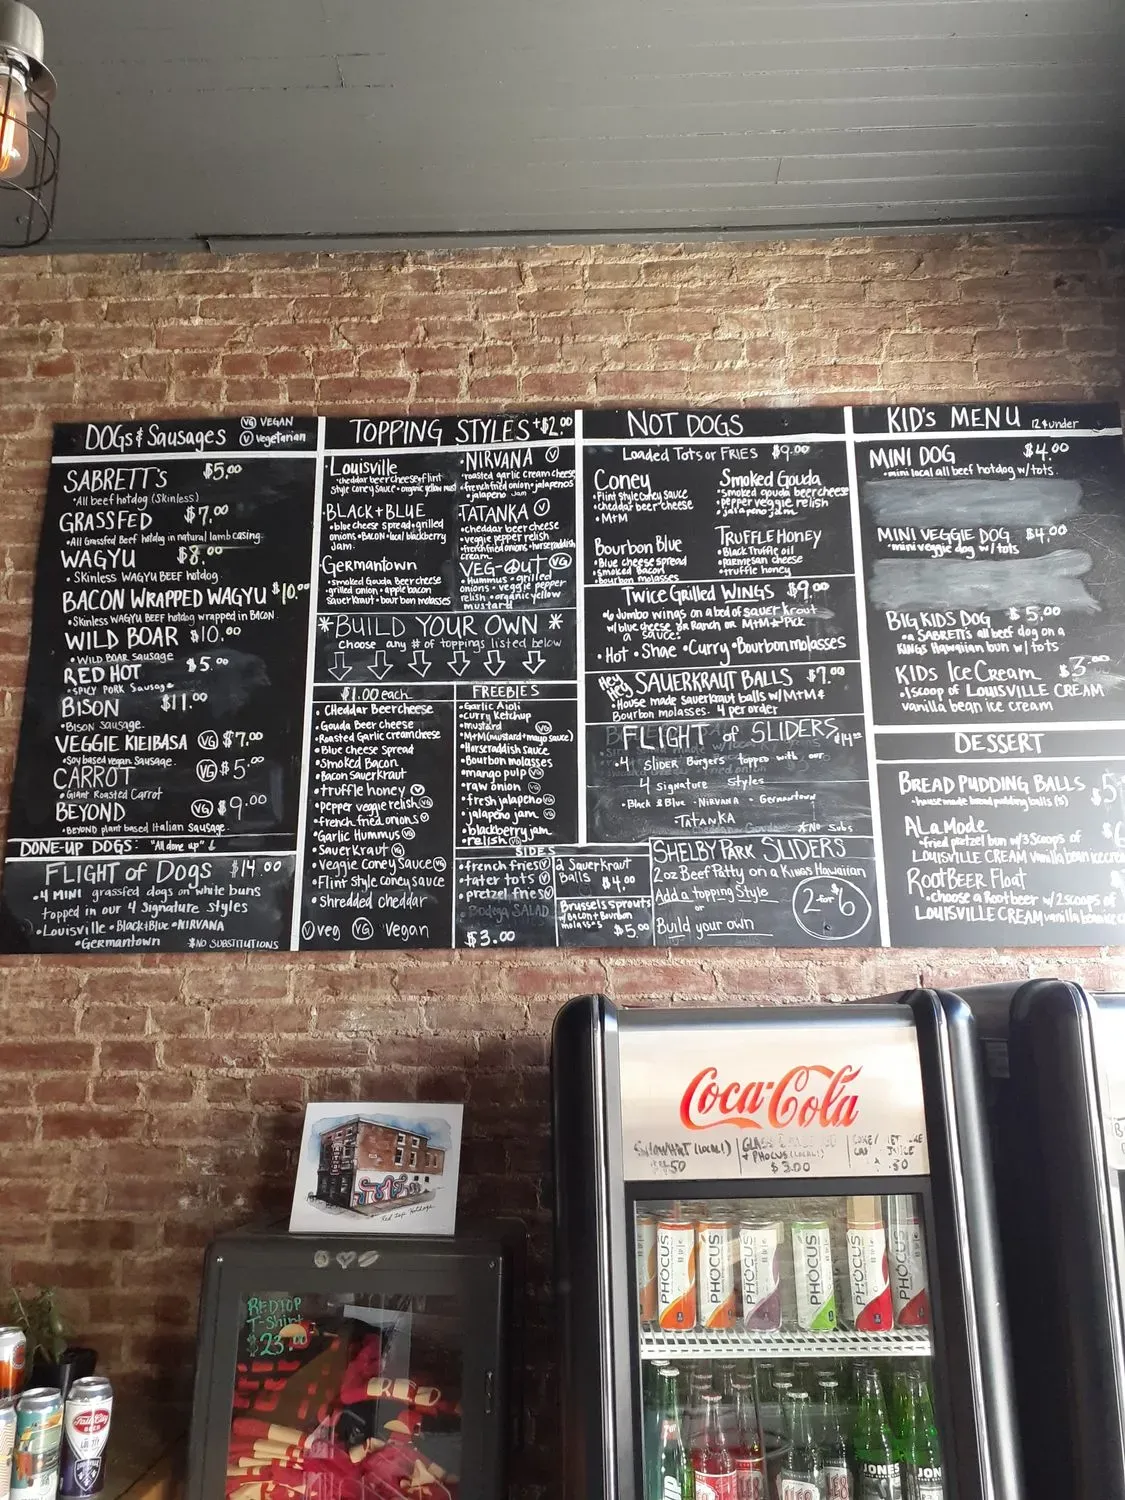 DOGS & Sausages
VG VEGAN
V Vegetarian
SABRETT's $5.00
•All beef hotdog (Skinless)
GRASSFED $7.00
•All Grassfed Beef hotdog in natural lamb casing.
WAGYU $8.00
• Skinless WAGYU BEEF hotdog.
BACON WRAPPED WAGYU $10.00
•Skinless WAGYU BEEF hotdog wrapped in BACON.
WILD BOAR $10.00
•WILD BOAR Sausage
RED HOT $5.00
•SPICY PORK Sausage
BISON $11.00
•BISON sausage.
VEGGIE KIELBASA VG $7.00
•Soy based vegan Sausage.
CARROT VG $5.00
•Giant Roasted Carrot
BEYOND VG $9.00
•BEYOND plant based Italian Sausage.
DONE-UP DOGS: "All done up"
FLIGHT of DOGS $14.00
•4 MINI grassfed dogs on white buns
topped in our 4 Signature styles
•Louisville •Black+Blue •NIRVANA
•Germantown *NO SUBSTITUTIONS
TOPPING STYLES +$2.00
•Louisville
•cheddar beer cheese •flint
style coney sauce •organic yellow must
•BLACK+BLUE
•blue cheese spread •grilled
onions •BACON •local blackberry
jam.
•Germantown
•smoked Gouda Beer cheese
•grilled onion •apple bacon
sauerkraut •bourbon molasses
•NIRVANA V
•roasted garlic cream cheese
•french fried onion •jalapenos
•jalapeno jam
•TATANKA V
•cheddar beer cheese
•veggie pepper relish
•french fried onions •horseradish
cream
•VEG-OUT VG
•Hummus •grilled
onions •veggie pepper
relish •organic yellow
mustard
*BUILD YOUR OWN*
choose any # of toppings listed below
$1.00 each
•Cheddar Beer cheese
•Gouda Beer cheese
•Roasted Garlic cream cheese
•Blue cheese Spread
•Smoked Bacon
•Bacon Sauerkraut
•truffle honey V
•pepper veggie relish VG
•french fried onions V
•Garlic Hummus VG
•Sauerkraut VG
•Veggie Coney Sauce VG
•Flint Style coney sauce
•Shredded cheddar
V veg VG Vegan
FREEBIES
•Garlic Aioli
•curry ketchup
•mustard VG
•M+M (mustard+mayo sauce)
•Horseraddish sauce
•Bourbon molasses
•mango pulp VG
•raw onion VG
•fresh jalapeño VG
•jalapeno jam VG
•blackberry jam
•relish VG
SIDES
•french fries V
•tater tots V
•pretzel fries V
•Bodega SALAD
$3.00
2 Sauerkraut
Balls
$4.00
Brussels sprouts
w/ Bacon + Bourbon
molasses $5.00
NOT DOGS
Loaded Tots or FRIES $9.00
Coney
•Flint style coney sauce
•cheddar beer cheese
•M+M
Smoked Gouda
•smoked gouda beer cheese
•pepper veggie relish
•jalapeno jam
Bourbon Blue
•Blue cheese spread
•smoked bacon
•bourbon molasses
TRUFFLE HONEY
•Black Truffle oil
•parmesan cheese
•truffle honey
Twice Grilled WINGS $9.00
•6 Jumbo wings on a bed of sauerkraut
w/ blue cheese or Ranch or M+M & Pick
a sauce:
•Hot •Shae •Curry •Bourbon molasses
Hey Hey SAUERKRAUT BALLS $7.00
•House made sauerkraut balls w/ M+M &
Bourbon molasses. 4 per order
FLIGHT of SLIDERS $14.00
•4 SLIDER Burgers topped with our
4 Signature Styles
•Black & Blue •NIRVANA •Germantown
•TATANKA *No Subs
SHELBY PARK SLIDERS
2oz Beef Patty on a KINGS Hawaiian
Add a topping style
or
Build your own
2 for $6
KID's MENU 12 & under
MINI DOG $4.00
•mini local all beef hotdog w/ tots.
MINI VEGGIE DOG $4.00
•mini veggie dog w/ tots
BIG KIDS DOG $5.00
•a SABRETTs all beef dog on a
KINGS Hawaiian bun w/ tots
KIDS Ice Cream $3.00
•1scoop of LOUISVILLE CREAM
vanilla bean ice cream
DESSERT
BREAD PUDDING BALLS $5
•house made bread pudding balls (5)
A La Mode
•fried pretzel bun w/ 3 Scoops of
LOUISVILLE CREAM vanilla bean ice cream
ROOT BEER Float
•choose a Root beer w/ 2 scoops of
LOUISVILLE CREAM vanilla bean ice
Coca-Cola
(LOCAL!)
+ PHOCUS (LOCAL!)
$3.00
Red Top Hotdogs
REDTOP
T-Shirt
$23.00
PHOCUS
PHOCUS
PHOCUS
PHOCUS
PHOCUS
PHOCUS
JONES
JON